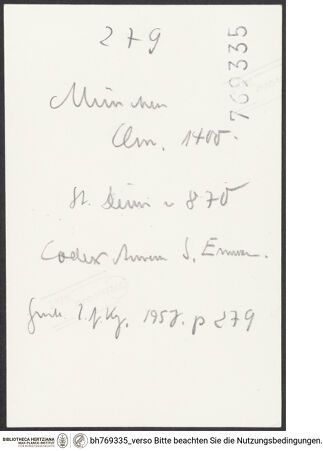 279
769335
München
Clm. 1400.
St. Denis 870
Codex Aureus S. Emmer.
1957. p 279
BIBLIOTHECA HERTZIANA
MAX-PLANCK-INSTITUT
bh769335_verso Bitte beachten Sie die Nutzungsbedingungen.